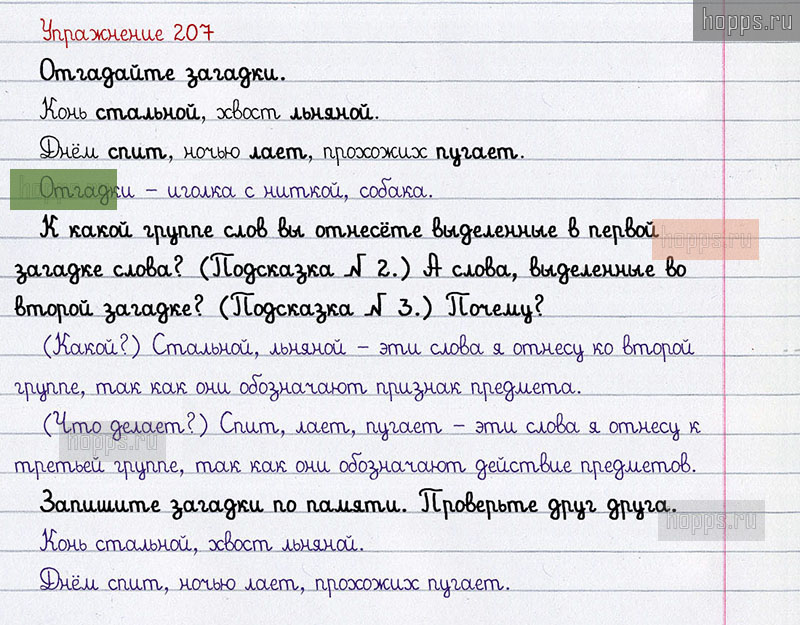 hopps.ru
Упражнение 207
Отгадайте загадки.
Конь стальной, хвост льняной.
Днём спит, ночью лает, прохожих пугает.
Отгадки – иголка с ниткой, собака.
К какой группе слов вы отнесёте выделенные в первой
hopps.ru
загадке слова? (Подсказка № 2.) А слова, выделенные во
второй загадке? (Подсказка № 3.) Почему?
(Какой?) Стальной, льняной – эти слова я отнесу ко второй
группе, так как они обозначают признак предмета.
(Что делает?) Спит, лает, пугает – эти слова я отнесу к
hopps.ru
третьей группе, так как они обозначают действие предметов.
Запишите загадки по памяти. Проверьте друг друга.
hopps.ru
Конь стальной, хвост льняной.
Днём спит, ночью лает, прохожих пугает.